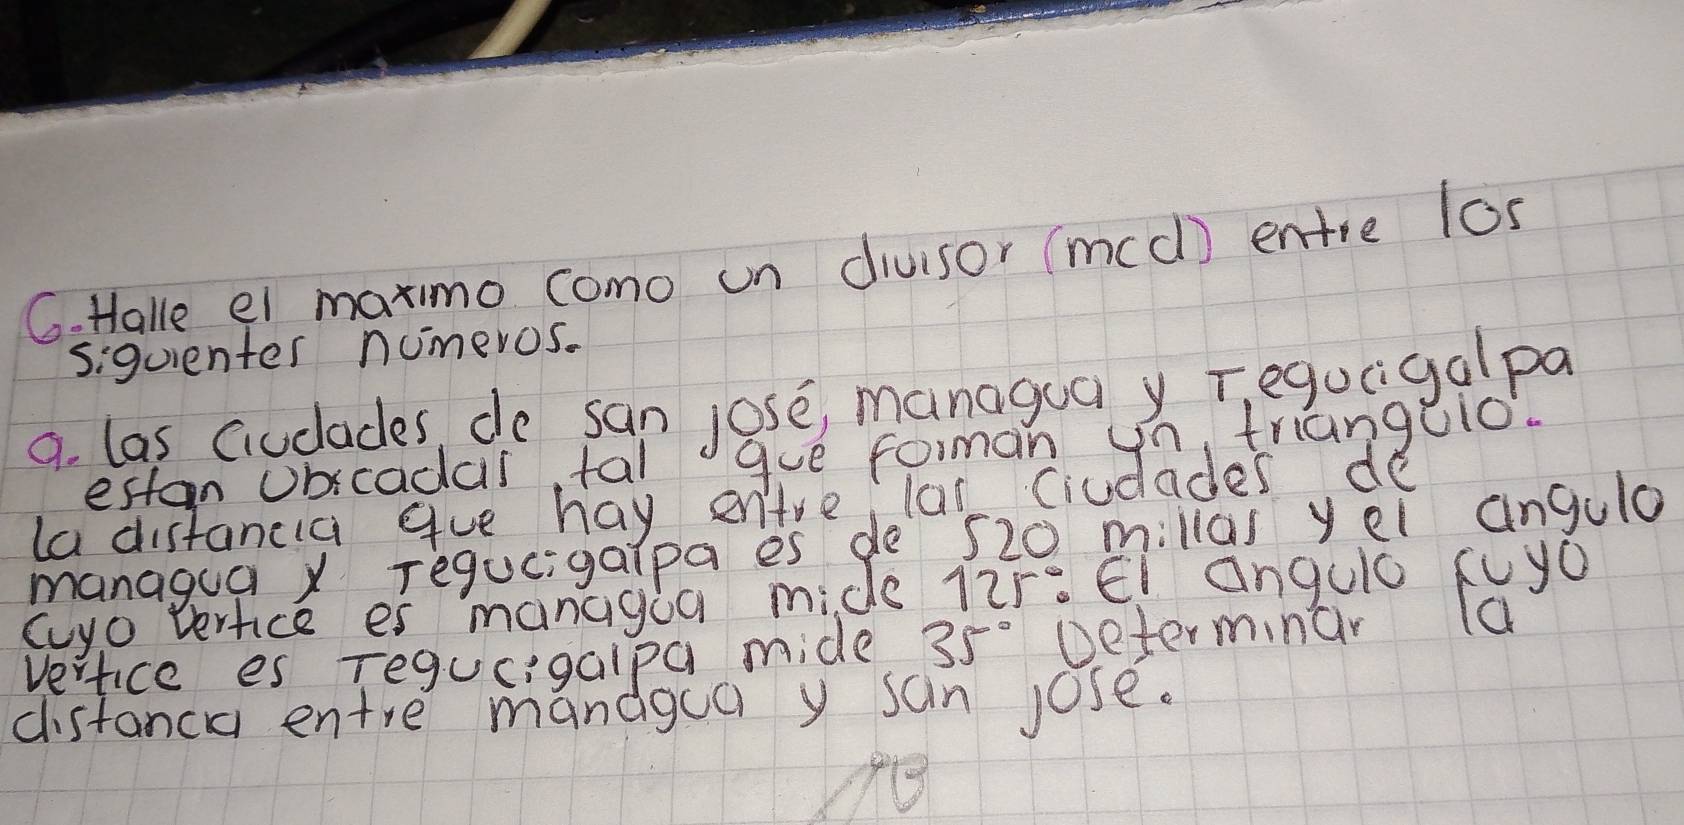 6. Halle el maximo como un divisor (mcd) entre los
siguientes números.
9. las ciudades, de san josé, managua y Tegucigalpa
estan ubicadas, tal que forman un, triangulo.
la distancia que hay entre, las ciudades de
managua y Tegucigalpa es de 520 millas y el angulo
cuyo vertice es managua mide 125°. El angulo cuyo
vertice es Tegucigalpa mide 35° Determinar la
distancia entre managua y san josé.